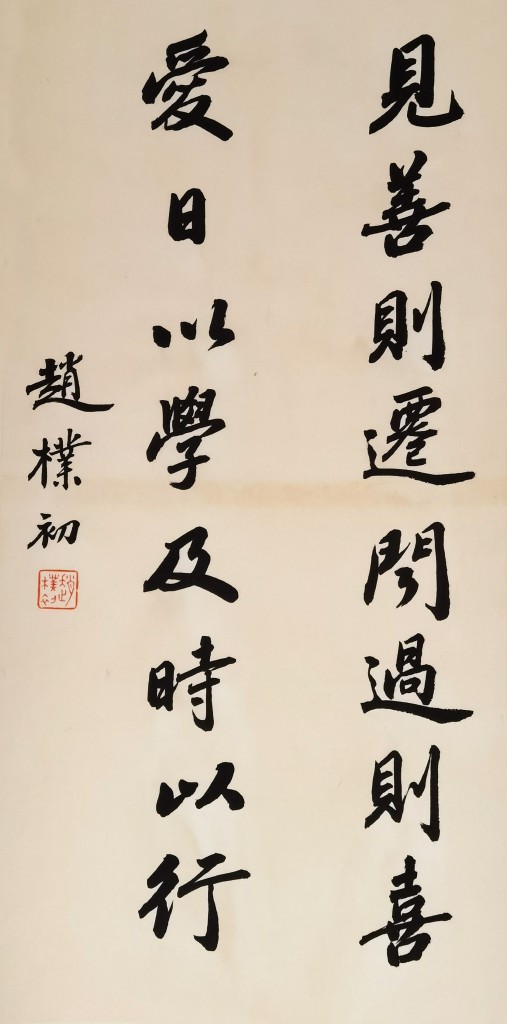 見善則遷聞過則喜
愛日以學及時以行
趙樸初
趙樸初